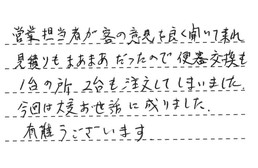 営業担当者が客の意見を良く聞いて来れ
見積りもまあまあだったので便器交換も
1台の所2台も注文してしまいました。
今回は大変お世話に成りました.
有難うございます